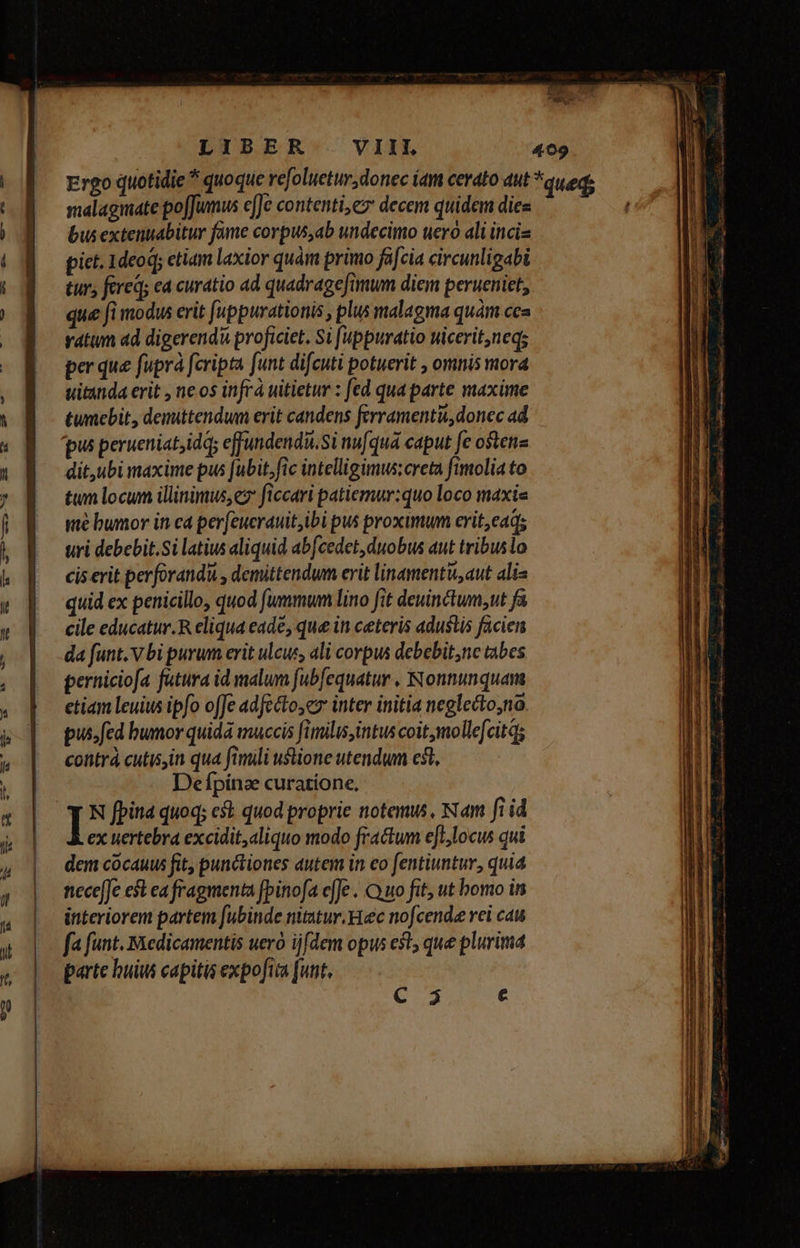 LIBER VIII. 409
Ergo quotidie * quoque reſoluetur, donec iam cerato aut * queq;
malagmate poſſumus eſſe contenti, & decem quidem die=
bus extenuabitur fame corpus, ab undecimo uerò ali inci=
piet. Ideoq; etiam laxior quàm primo faſcia circunligabi
tur, ferèq; ea curatio ad quadrageſimum diem perueniet,
quæ ſi modus erit ſuppurationis, plus malagma quàm ce=
ratum ad digerendū proficiet. Si ſuppuratio uicerit, neq;
per que ſuprà ſcripta ſunt diſcuti potuerit, omnis mora
uitanda erit, ne os infrà uitietur: ſed qua parte maxime
tumebit, demittendum erit candens ferramentū, donec ad
pus perueniat, idq; effundendū. Si nuſquã caput ſe oſten=
dit, ubi maxime pus ſubit, ſic intelligimus: creta ſimolia to
tum locum illinimus, & ſiccari patiemur: quo loco maxi=
mè humor in ea perſeuerauit, ibi pus proximum erit, eaq;
uri debebit. Si latius aliquid abſcedet, duobus aut tribus lo
cis erit perforandū, demittendum erit linamentū, aut ali=
quid ex penicillo, quod ſummum lino ſit deuinctum, ut fa
cile educatur. Reliqua eadẽ, quæ in cæteris aduſtis facien
da ſunt. Vbi purum erit ulcus, ali corpus debebit, ne tabes
pernicioſa futura id malum ſubſequatur. Nonnunquam
etiam leuius ipſo oſſe adfecto, & inter initia neglecto, nõ
pus, ſed humor quidã muccis ſimilis, intus coit, molleſcitq;
contrà cutis, in qua ſimili uſtione utendum eſt.
De ſpinæ curatione.
IN ſpina quoq; eſt quod proprie notemus. Nam ſi id
ex uertebra excidit, aliquo modo fractum eſt, locus qui
dem cõcauus fit, punctiones autem in eo ſentiuntur, quia
neceſſe eſt ea fragmenta ſpinoſa eſſe. Quo fit, ut homo in
interiorem partem ſubinde nitatur. Hæc noſcendæ rei cau
ſa ſunt. Medicamentis uerò ijſdem opus eſt, quæ plurima
parte huius capitis expoſita ſunt.
C 3 e